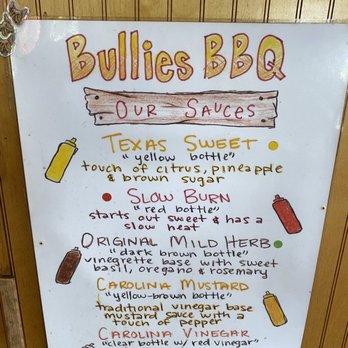 Bullies BBQ
OUR SAUCES
TEXAS SWEET
"yellow bottle"
touch of citrus, pineapple
& brown sugar
SLOW BURN
"red bottle"
starts out sweet & has a
slow heat
ORIGINAL MILD HERB
"dark brown bottle"
vinegrette base with sweet
basil, oregano & rosemary
CAROLINA MUSTARD
"yellow-brown bottle"
traditional vinegar base
mustard sauce with a
touch of pepper
CAROLINA VINEGAR
"clear bottle w/ red vinegar"